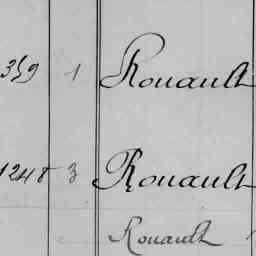 359 1 Rouault
1248 3 Rouault
Rouault